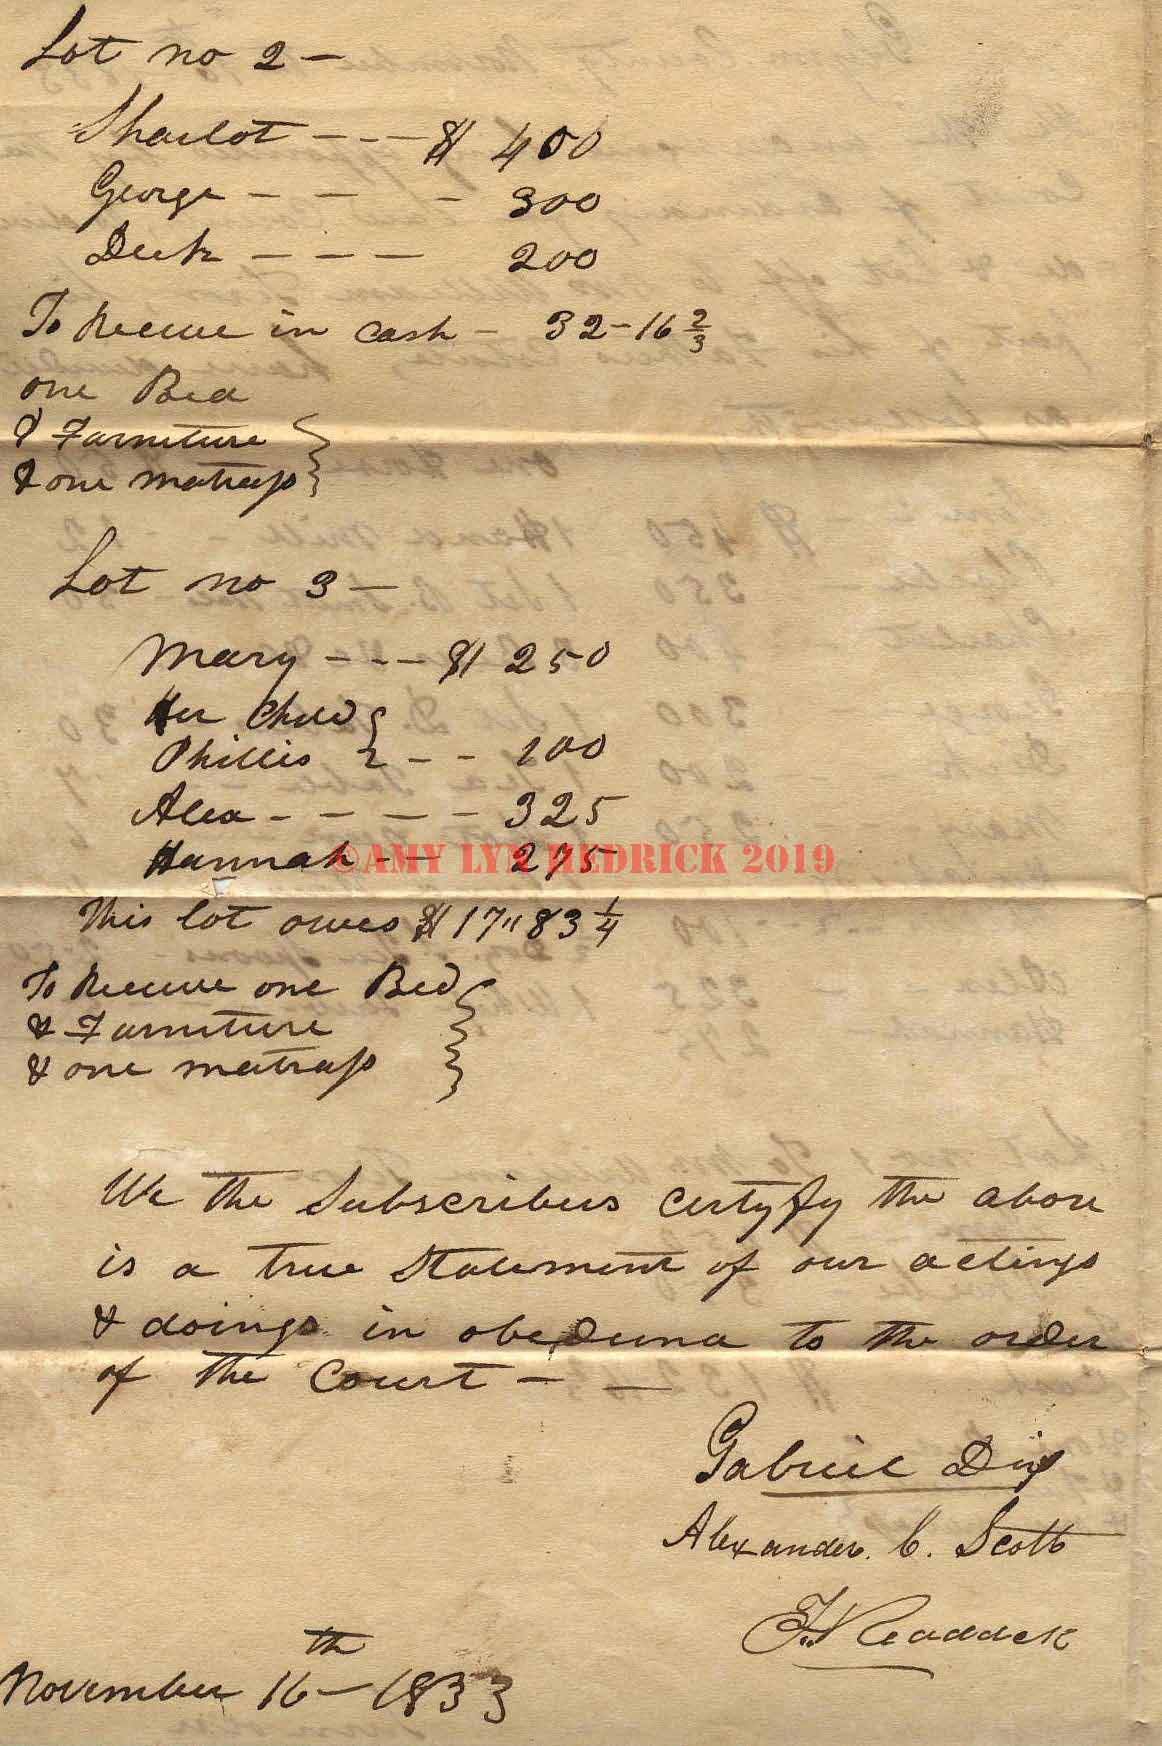 Lot no 2 –
Sharlot - - - $ 400
George - - - 300
Deek - - - 200
To Receive in cash - 32-16 2/3
one Bed
& Furniture
& one matrass
Lot no 3 –
Mary - - - $ 250
Her Child
Phillis - - 100
Alex - - - - 325
Hannah - - 275
©AMY LYN HEDRICK 2019
This lot owes $ 17"83 1/4
To Receive one Bed
& Furniture
& one matrass
We the Subscribers certyfy the above
is a true Statement of our actings
& doings in obedience to the order
of the Court - -
Gabriel
Alexander. C. Scott
Readdick
November 16th – 1833